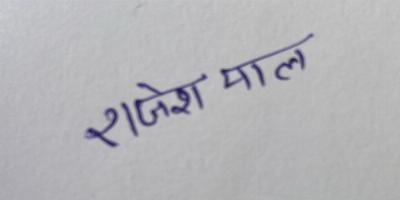 राजेश पाल